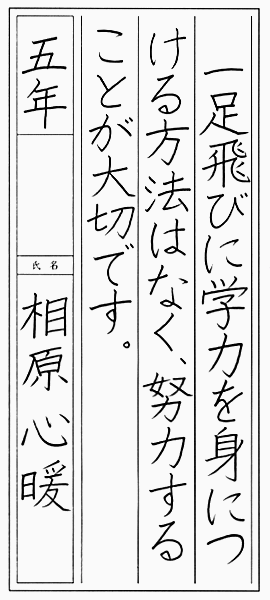 一足飛びに学力を身につ
ける方法はなく、努力する
ことが大切です。
五年
氏名
相原心暖